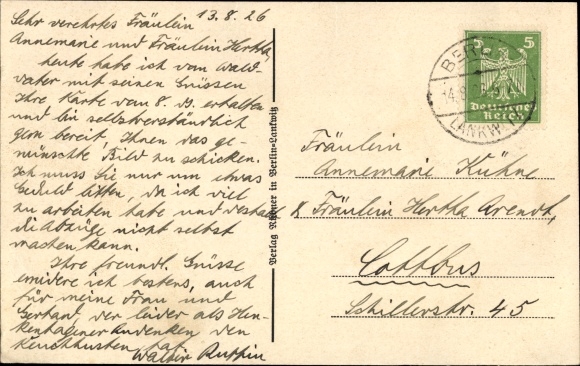 13.8.26
Sehr verehrtes Fräulein
Annemarie und Fräulein Hertha,
heute habe ich vom Wald-
vater mit seinen Grüssen
Ihre Karte vom 8. ds. erhalten
und bin selbstverständlich
gern bereit, Ihnen das ge-
wünschte Bild zu schicken.
Ich muss Sie nur um etwas
Geduld bitten, da ich viel
zu arbeiten habe und deshalb
die Abzüge nicht selbst
machen kann.
Ihre freundl. Grüsse
erwidere ich bestens, auch
für meine Frau und
Gerhard, der leider als Hen-
kenhagener Andenken den
Keuchhusten hat.
Walter
Verlag in Berlin-Lankwitz
5 5
Deutsches
Reich
BERLIN
14.8.
LANKWITZ
Fräulein
Annemarie Kühne
& Fräulein Hertha Arendt,
Cottbus
Schillerstr. 45